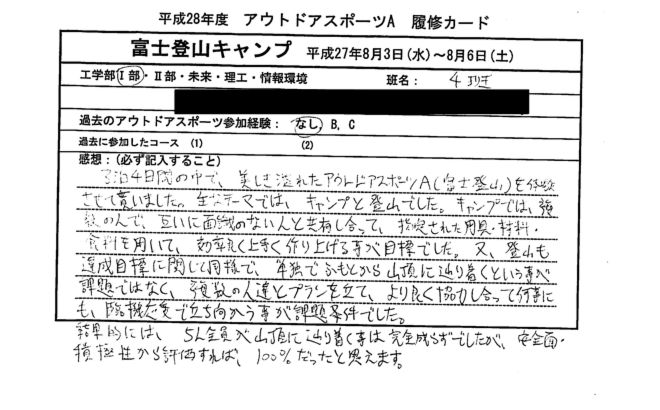 平成28年度 アウトドアスポーツA 履修カード
富士登山キャンプ 平成27年8月3日(水)～8月6日(土)
工学部Ⅰ部・Ⅱ部・未来・理工・情報環境 班名： 4班
過去のアウトドアスポーツ参加経験：なし, B, C
過去に参加したコース (1) (2)
感想：(必ず記入すること)
3泊4日間の中で、美しき溢れたアウトドアスポーツA(富士登山)を体験
させて貰いました。主なテーマでは、キャンプと登山でした。キャンプでは、複
数の人で、互いに面識のない人と共有し合って、指定された用具・材料・
食料を用いて、効率良く上手く作り上げる事が目標でした。又、登山も
達成目標に関して同様で、単独でふもとから山頂に辿り着くという事が
課題ではなく、複数の人達とプランを立て、より良く協力し合って何事に
も、臨機応変で立ち向かう事が課題条件でした。
結果的には、5人全員が山頂に辿り着く事は完全成らずでしたが、安全面・
積極性から評価すれば、100%だったと思えます。